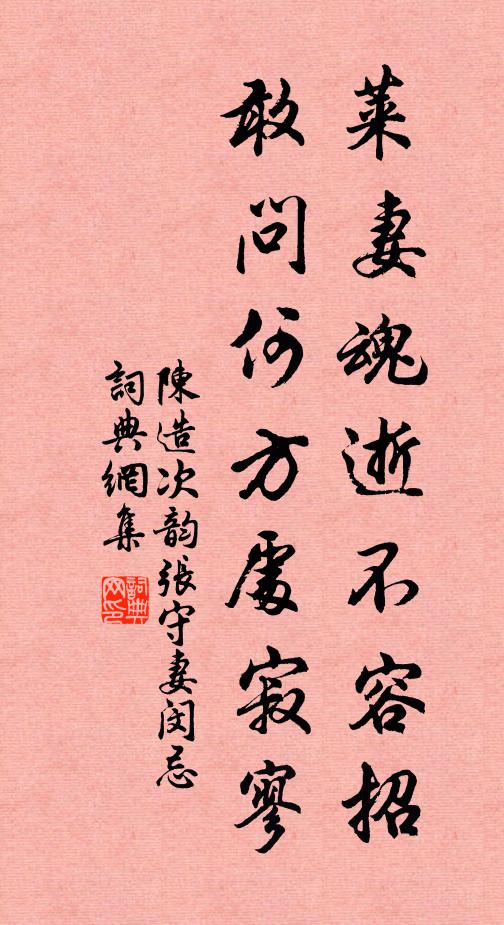 萊妻魂逝不容招
敢問何方處寂寥
陳造次韵張守妻閔忌
詞典網集
詞典網印